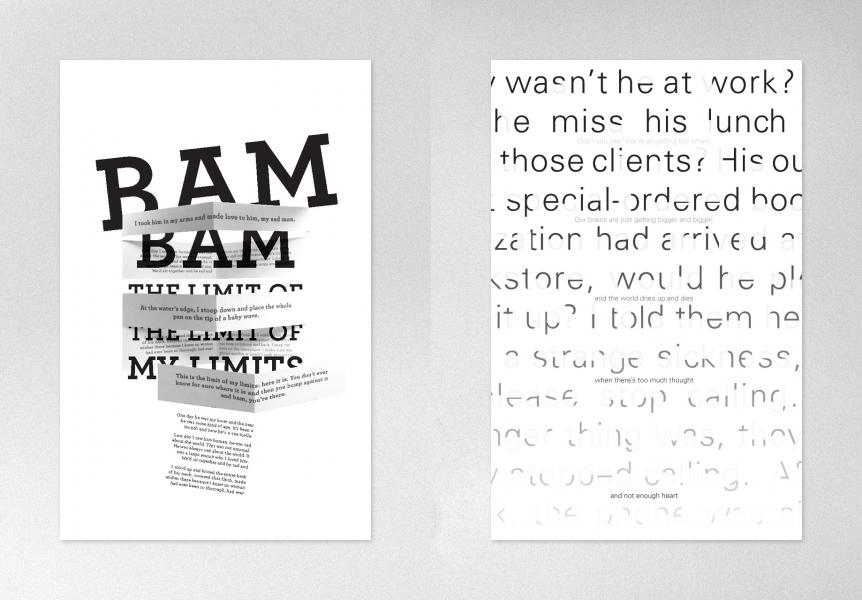 BAM
I took him in my arms and made love to him, my sad man.
BAM
THE LIMIT OF
At the water's edge, I stoop down and place the whole
pan on the tip of a baby wave.
THE LIMIT OF
MY LIMITS
This is the limit of my limits: here it is. You don't ever
know for sure where it is and then you bump against it
and bam, you're there.
One day he was my lover and the next
he was some kind of ape. It's been a
month and now he's a sea turtle.
Last day I saw him human, he was sad
about the world. This was not unusual.
He was always sad about the world. It
was a large reason why I loved him.
We'd sit together and be sad and
I stood up and kissed the entire back
of his neck, ensured that flesh, made
wishes there because I knew no woman
had ever been so thorough, had ever
y wasn't he at work?
he miss his lunch
Don't you see? We're all getting too smart.
those clients? His ou
special-ordered boo
Our brains are just getting bigger and bigger,
zation had arrived a
kstore, would he pl
and the world dries up and dies
it up? I told them he
a strange sickness,
when there's too much thought
lease, stop calling.
nger thing was, they
stopped calling.
and not enough heart
the phone was